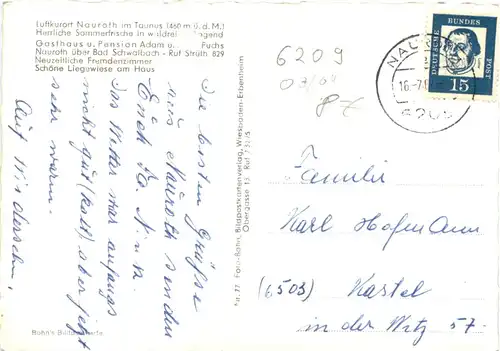 Luftkurort Nauroth im Taunus (460 m ü. d. M.)
Herrliche Sommerfrische in waldreicher Gegend
Gasthaus u. Pension Adam Fuchs
Nauroth über Bad Schwalbach - Ruf Strüth 829
Neuzeitliche Fremdenzimmer
Schöne Liegewiese am Haus
Die besten Grüße
aus Nauroth senden
Euch
Das Wetter war anfangs
nicht gut (kalt) aber jetzt
sehr warm.
Auf Wiedersehen,
Foto-Bohn, Bildpostkartenverlag, Wiesbaden-Erbenheim
6209
DEUTSCHE
BUNDES
POST
15
Familie
Karl Hofmann
(6503) Kastel
in der Witz 57.